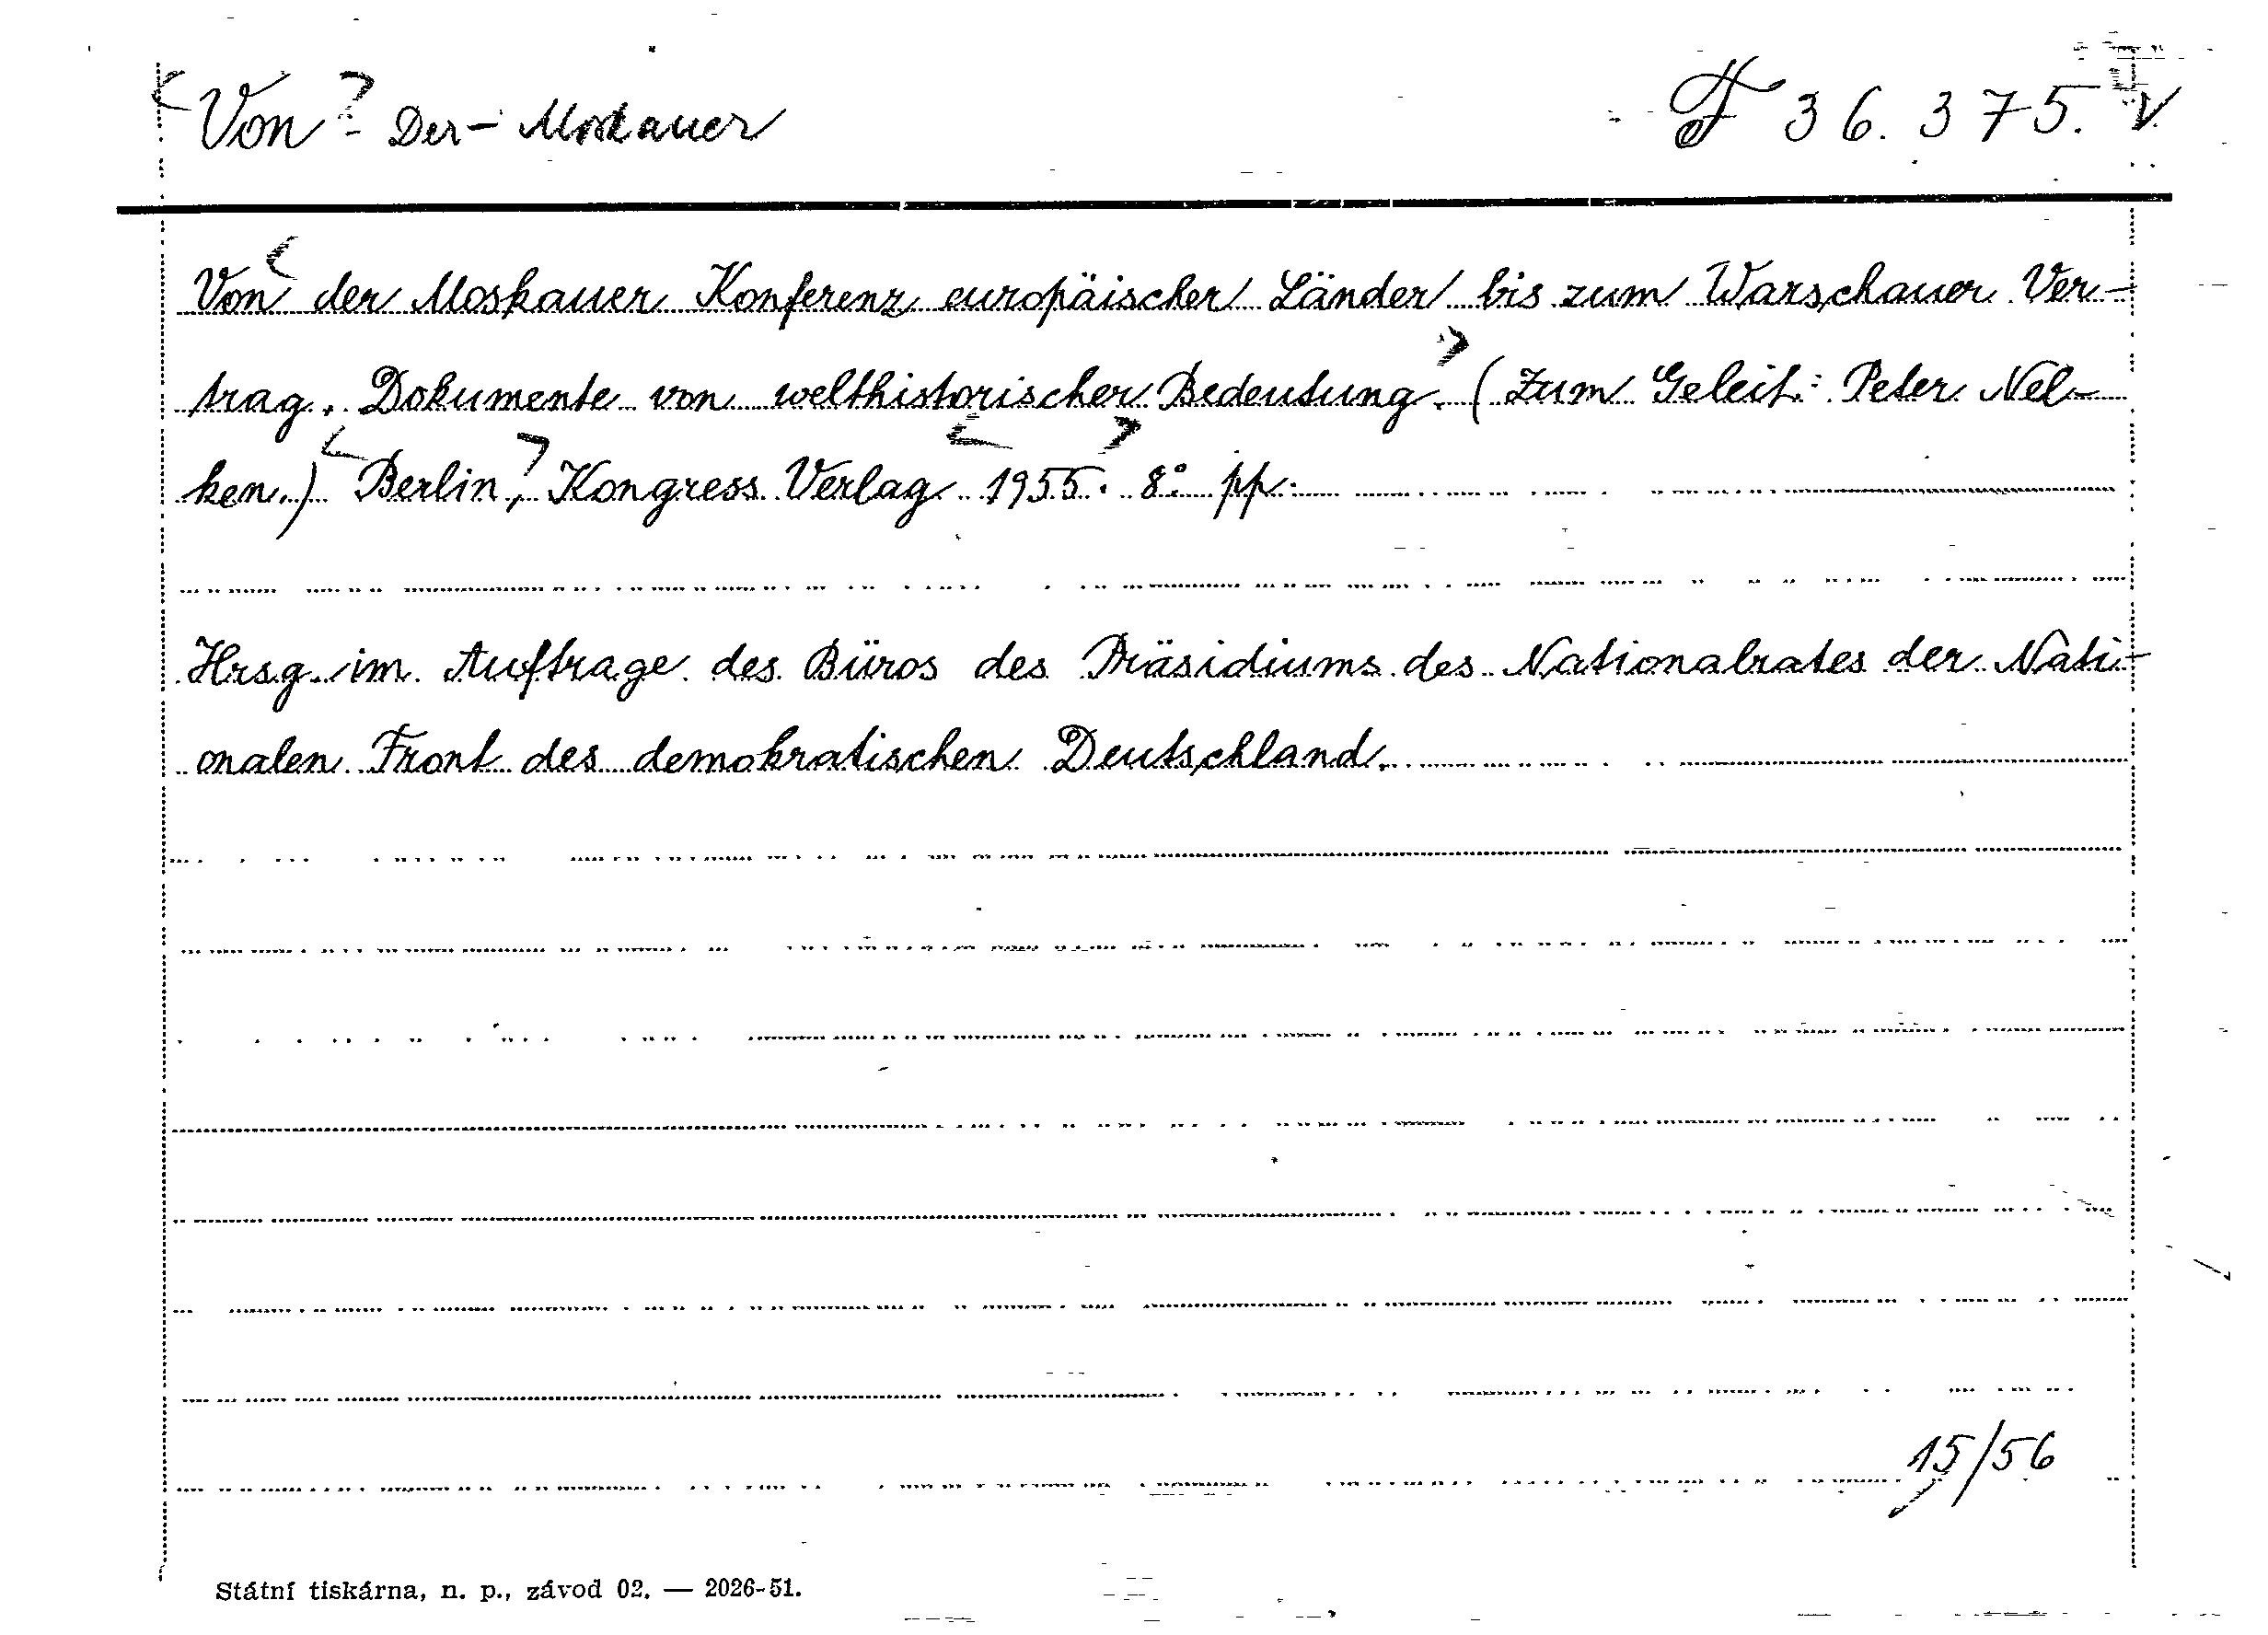 Von - Der - Moskauer F 36.375. V.
Von der Moskauer Konferenz europäischer Länder bis zum Warschauer Ver-
trag. Dokumente von welthistorischer Bedeutung. (Zum Geleit: Peter Nel-
ken.) Berlin, Kongress Verlag 1955. 8° pp.
Hrsg. im Auftrage des Büros des Präsidiums des Nationalrates der Nati-
onalen Front des demokratischen Deutschland.
15/56
Státní tiskárna, n. p., závod 02. — 2026-51.